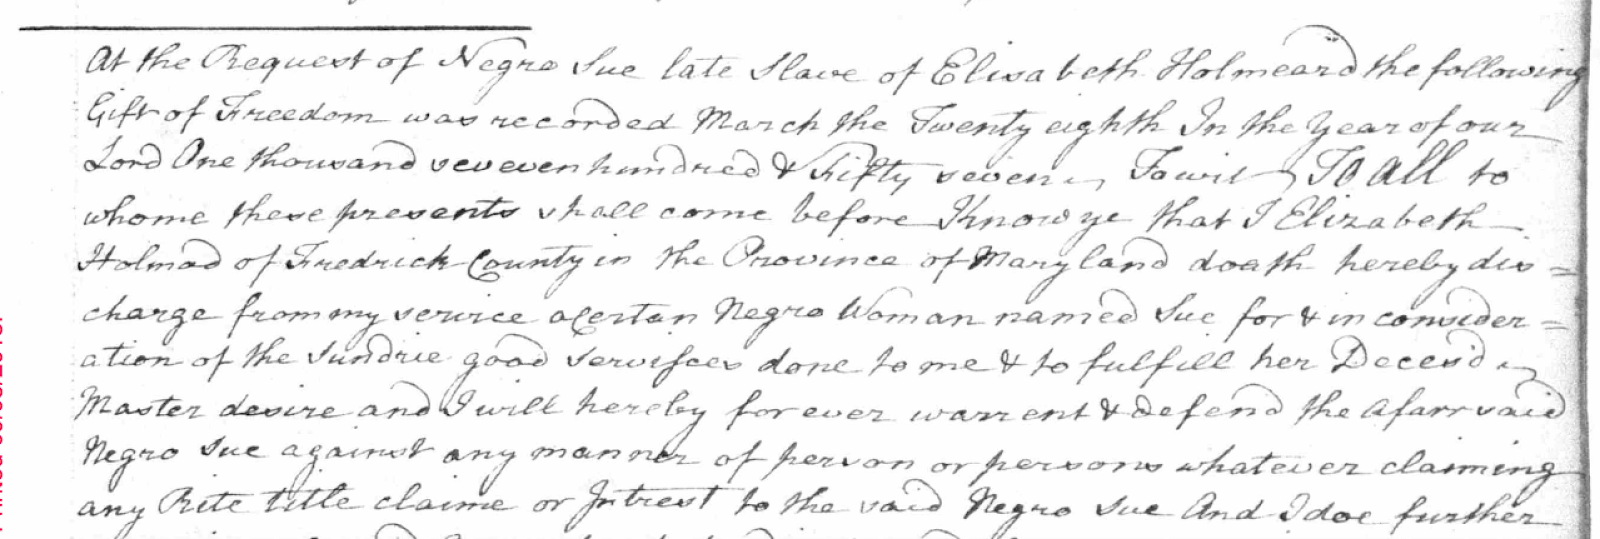 At the Request of Negro Sue late Slave of Elisabeth Holmeard the following
Gift of Freedom was recorded March the Twenty eighth In the Year of our
Lord One thousand seveven hundred & Fifty seven Towit To all to
whome these presents shall come before Know ye that I Elizabeth
Holmad of Fredrick County in the Province of Maryland doath hereby dis=
charge from my service a Certan Negro Woman named Sue for & in consider=
ation of the Sundrie good Servisces done to me & to fulfill her Decesd
Master desire and I will hereby for ever warrent & defend the afarr said
Negro Sue against any manner of person or persons whatever claiming
any Rite title claime or Intrest to the said Negro Sue And I doe further